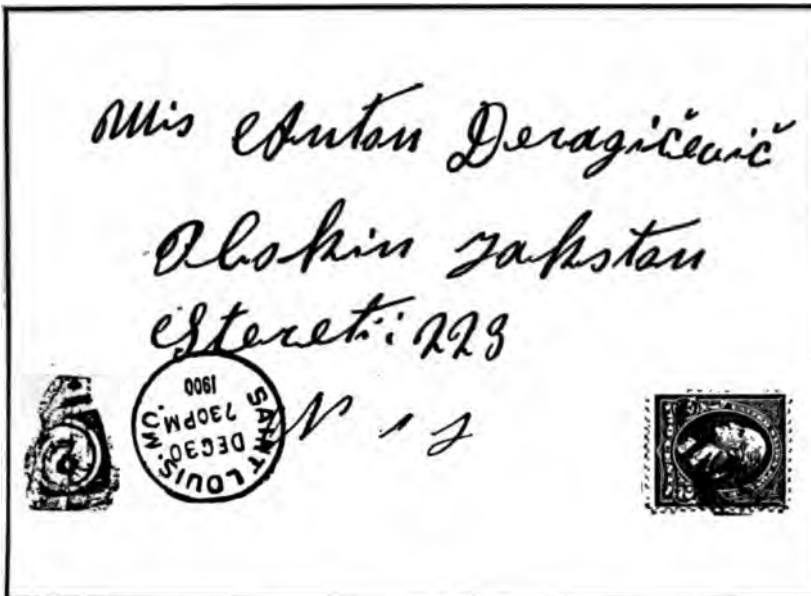 Mis Anton Deragičevič
Obokin Jakstan
Stereti: 223
N J
SAINT LOUIS, MO.
DEC30
730PM
1900